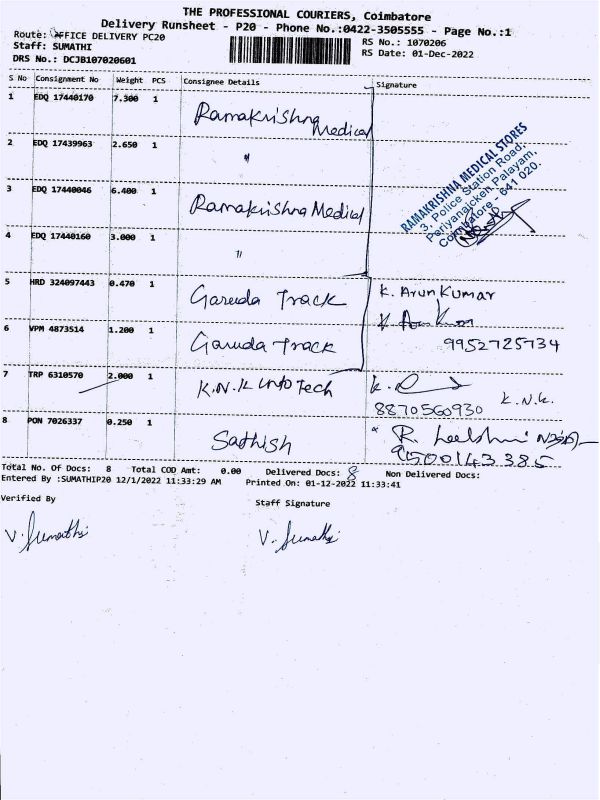 THE PROFESSIONAL COURIERS, Coimbatore
Delivery Runsheet - P20 - Phone No.:0422-3505555 - Page No.:1
Route: OFFICE DELIVERY PC20
RS No.: 1070206
Staff: SUMATHI
RS Date: 01-Dec-2022
DRS No.: DCJB107020601
S No Consignment No Weight PCS Consignee Details Signature
1 EDQ 17440170 7.300 1 Ramakrishna Medical
2 EDQ 17439963 2.650 1 "
RAMAKRISHNA MEDICAL STORES
3, Police Station Road,
Periyanaicken Palayam,
Coimbatore - 641 020.
3 EDQ 17440046 6.400 1 Ramakrishna Medical
4 EDQ 17440160 3.000 1 "
5 HRD 324097443 0.470 1 Garuda Track K. ArunKumar
6 VPM 4873514 1.200 1 Garuda Track 9952725734
7 TRP 6310570 2.000 1 K.N.K Info Tech K.N.K.
8870560930
8 PON 7026337 0.250 1 Sathish R.
9500143385
Total No. Of Docs: 8 Total COD Amt: 0.00 Delivered Docs: 8 Non Delivered Docs:
Entered By :SUMATHIP20 12/1/2022 11:33:29 AM Printed On: 01-12-2022 11:33:41
Verified By Staff Signature
V. Sumathi V. Sumathi